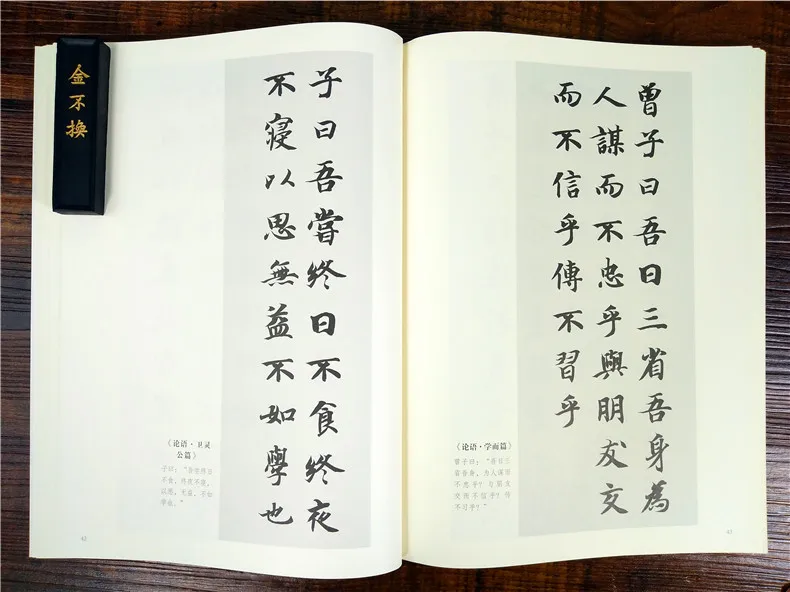 金不換
子曰吾嘗終日不食終夜
不寢以思無益不如學也
《论语·卫灵
公篇》
子曰：“吾尝终日
不食，终夜不寝，
以思，无益，不如
学也。”
42
曾子曰吾日三省吾身為
人謀而不忠乎與朋友交
而不信乎傳不習乎
《论语·学而篇》
曾子曰：“吾日三
省吾身，为人谋而
不忠乎？与朋友
交而不信乎？传
不习乎？”
43